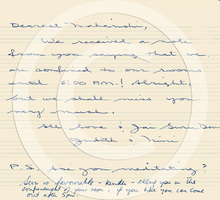 Dearest Maharishi,
We received a note
from you saying that we
are confined to our room
until 5:00 P.M.! Alright
but we shall miss you
very much.
All love & Jai Guru Dev
Judith &
P.S. Are you meditating?
is favourable - Kindly - tells you in the
of your room. if you like you can come
out after 5pm.